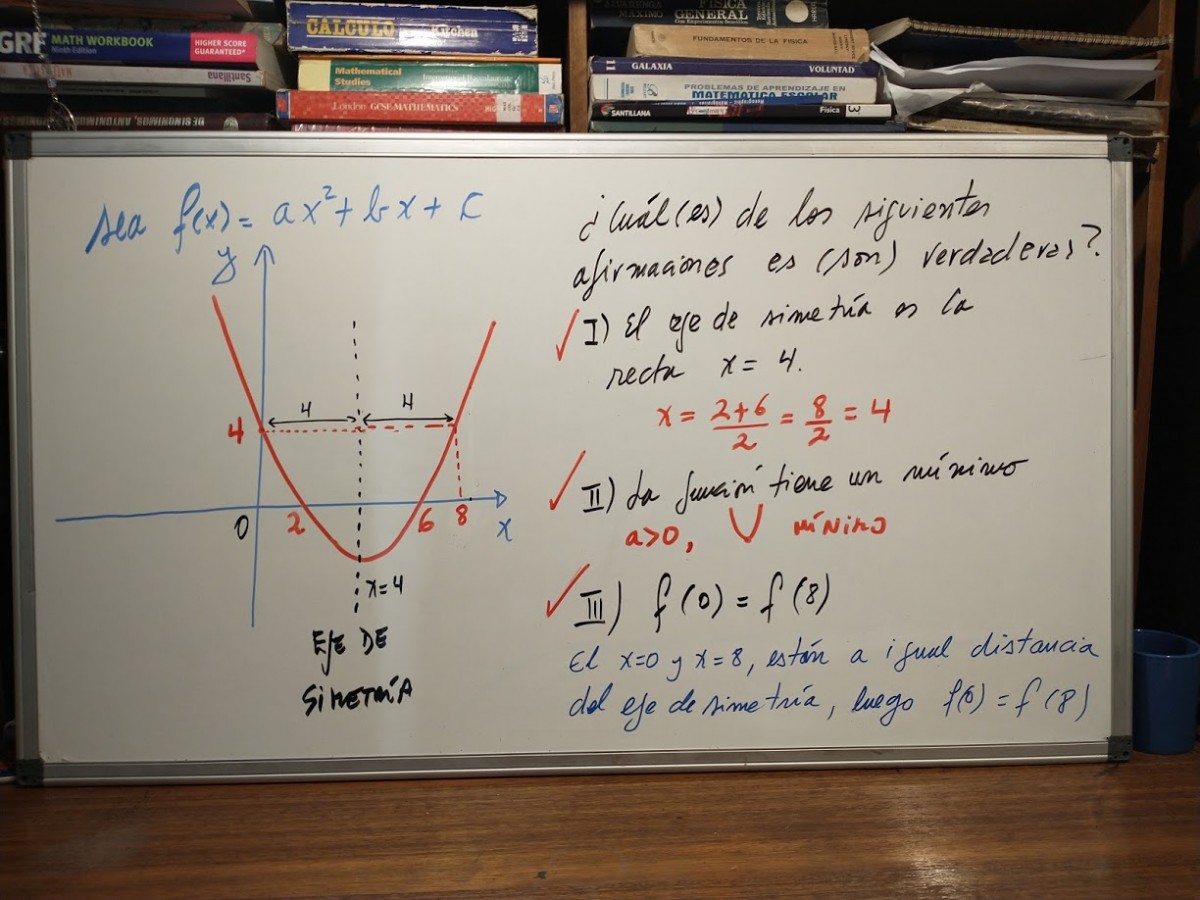 GRE MATH WORKBOOK
Ninth Edition
HIGHER SCORE
GUARANTEED*
Santillana
CALCULO
Kitchen
Mathematical
Studies
London GCSE MATHEMATICS
MAXIMO
FISICA
GENERAL
FUNDAMENTOS DE LA FISICA
II GALAXIA VOLUNTAD
PROBLEMAS DE APRENDIZAJE EN
MATEMATICA ESCOLAR
SANTILLANA
Física
3
sea f(x) = ax²+bx+c
y
4 4
4
0 2 6 8 x
x=4
EJE DE
SIMETRÍA
¿Cuál(es) de los siguientes
afirmaciones es (son) verdaderas?
✓ I) El eje de simetría es la
recta x = 4.
x = 2+6/2 = 8/2 = 4
✓ II) La función tiene un mínimo
a>0, ∪ MÍNIMO
✓ III) f(0) = f(8)
El x=0 y x=8, están a igual distancia
del eje de simetría, luego f(0) = f(8)